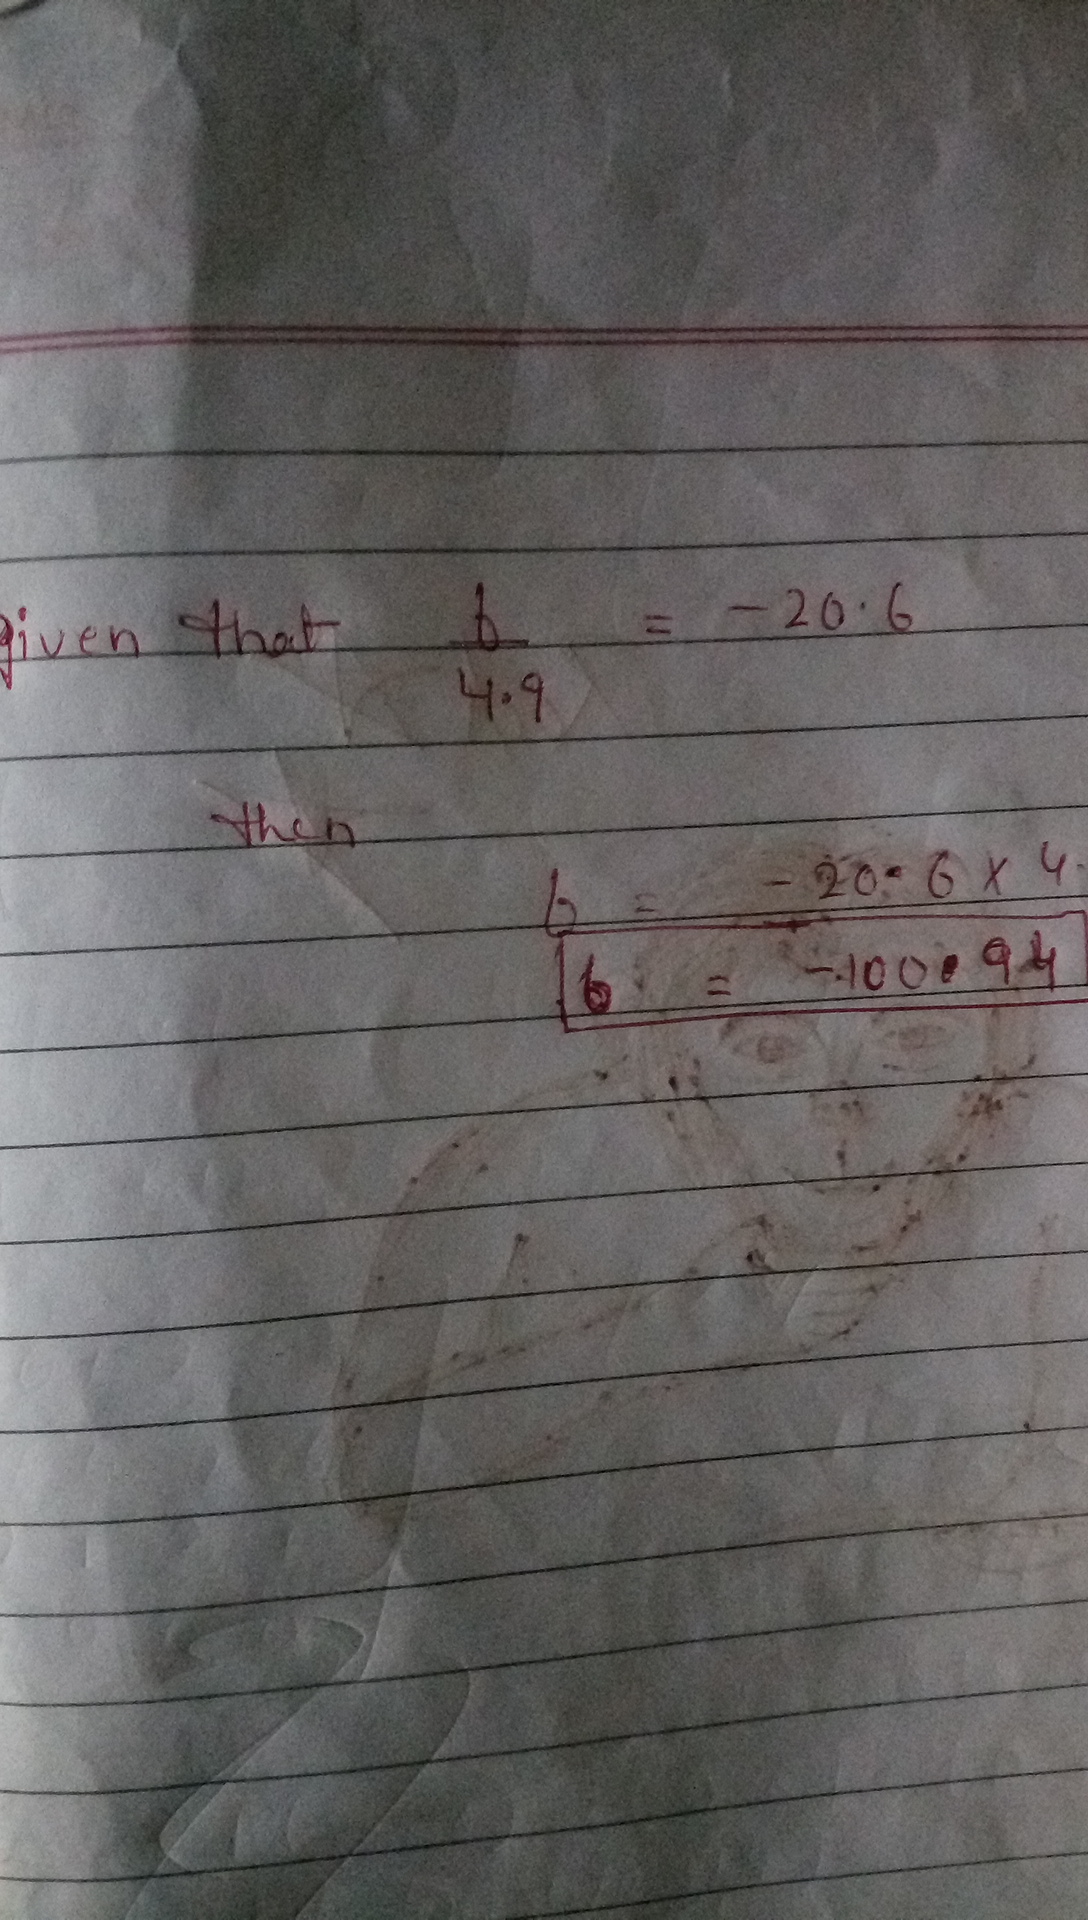 given that b/4.9 = -20.6
then
b = -20.6 x 4.
b = -100.94